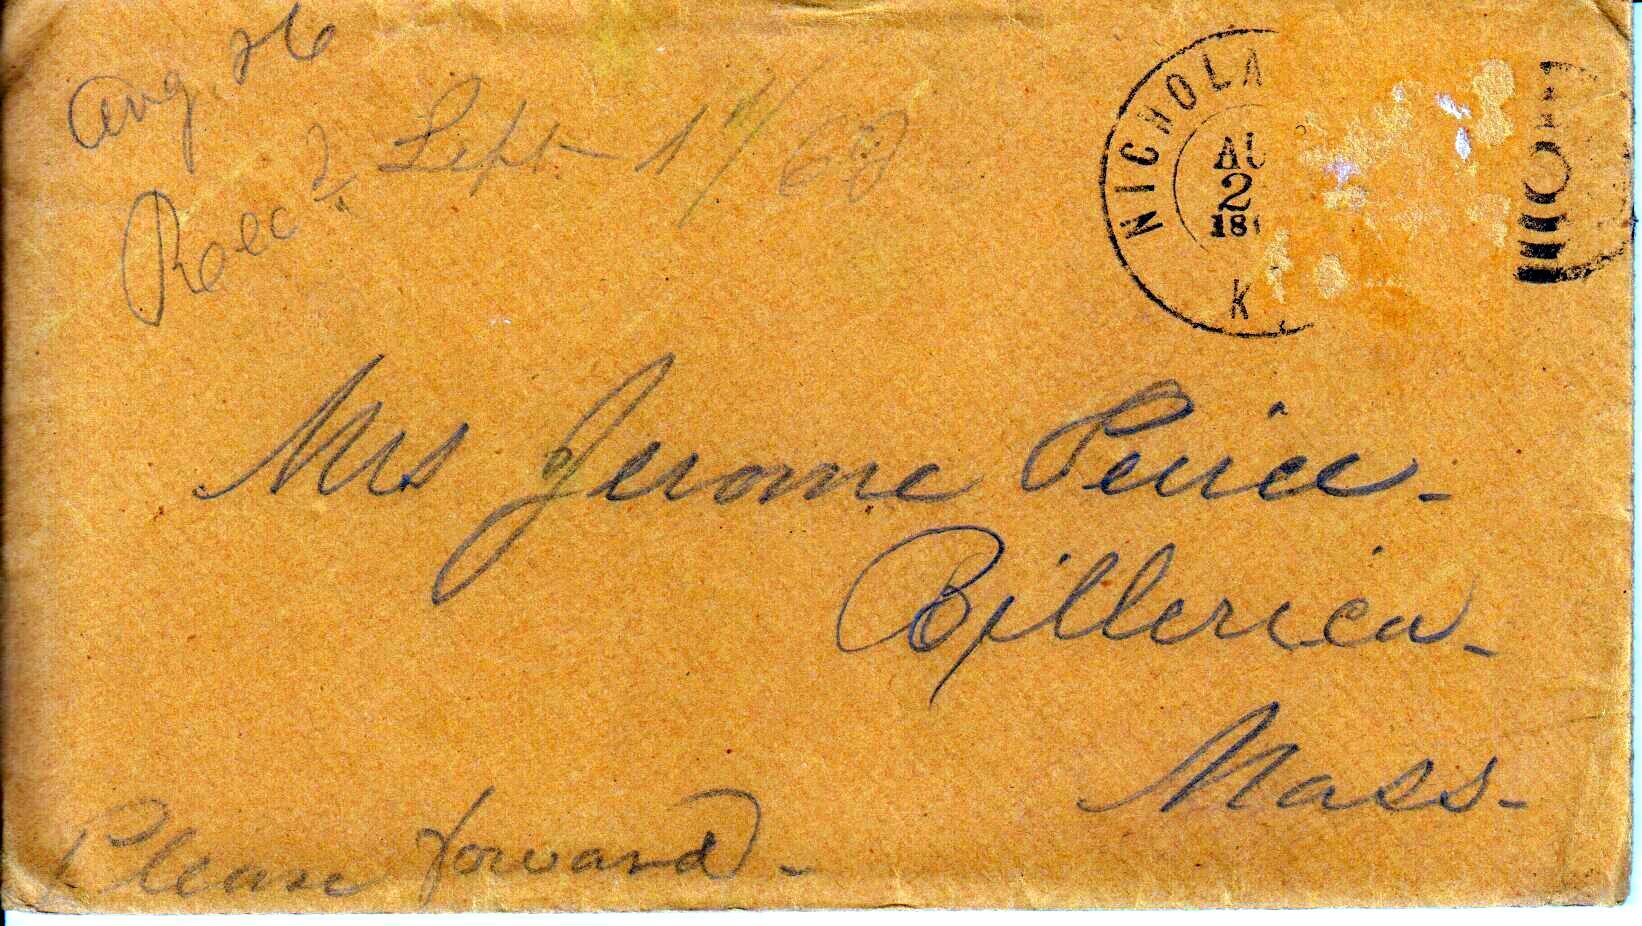 Aug. 26
Recd Sept 1st / 63
NICHOLA
AU
2
18
K
Mrs Jerome Peirce.
Billerica.
Mass.
Please forward.